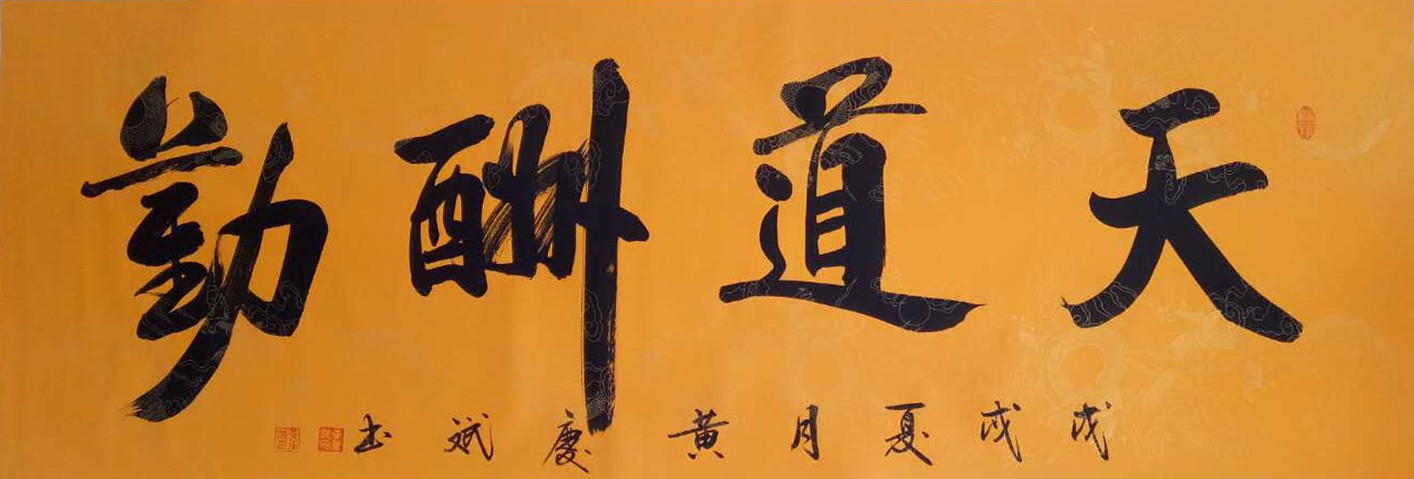 天道酬勤
戊戌夏月黄慶斌书